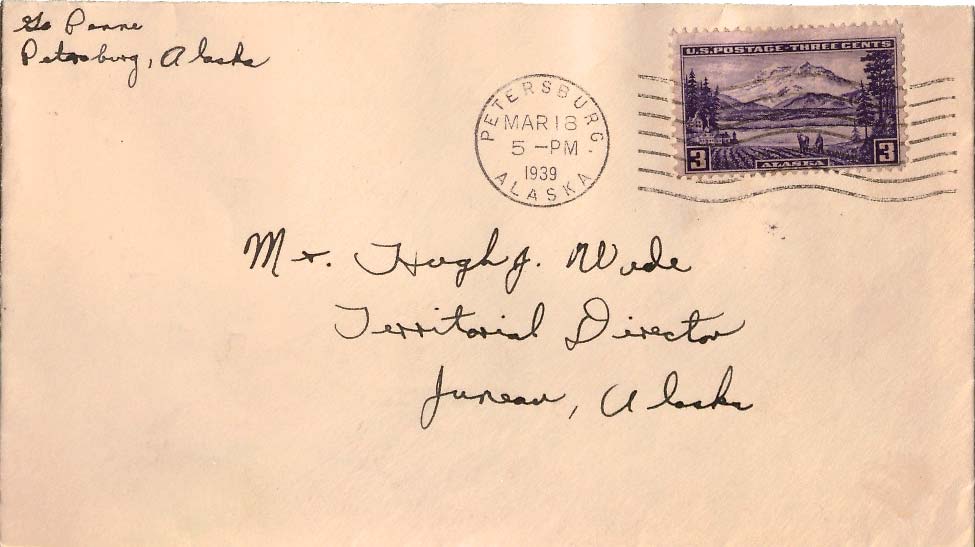 Petersburg, Alaska
U.S. POSTAGE - THREE CENTS
3 ALASKA 3
PETERSBURG.
MAR 18
5 - PM
1939
ALASKA
Mr. Hugh J. Wade
Territorial Director
Juneau, Alaska